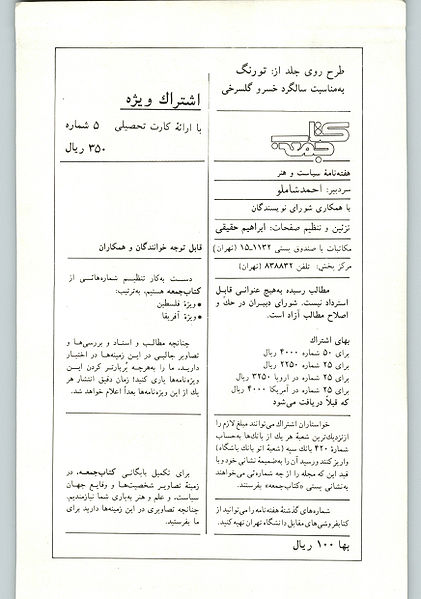 طرح روی جلد از: تورنگ
به‌مناسبت سالگرد خسرو گلسرخی
کتاب جمعه
هفته‌نامهٔ سیاست و هنر
سردبیر: احمد شاملو
با همکاری شورای نویسندگان
تزئین و تنظیم صفحات: ابراهیم حقیقی
مکاتبات با صندوق پستی ۱۱۳۲ـ۱۵ (تهران)
مرکز پخش: تلفن ۸۳۸۸۳۲ (تهران)
مطالب رسیده به‌هیچ عنوانی قابل
استرداد نیست. شورای دبیران در حک و
اصلاح مطالب آزاد است.
بهای اشتراک
برای ۵۰ شماره ۴۰۰۰ ریال
برای ۲۵ شماره ۲۲۵۰ ریال
برای ۲۵ شماره در اروپا ۳۲۵۰ ریال
برای ۲۵ شماره در آمریکا ۴۰۰۰ ریال
که قبلاً دریافت می‌شود
خواستاران اشتراک می‌توانند مبلغ لازم را
ازنزدیک‌ترین شعبهٔ هر یک از بانک‌ها به‌حساب
شمارهٔ ۴۲۰ بانک سپه (شعبهٔ اتو بانک باشگاه)
واریز کنند و رسید آن را به‌ضمیمهٔ نشانی خود و با
قید این که مجله را از چه شماره‌ئی می‌خواهند
به‌نشانی پستی «کتاب‌جمعه» بفرستند.
شماره‌های گذشتهٔ هفته‌نامه را می‌توانید از
کتابفروشی‌های مقابل دانشگاه تهران تهیه کنید.
بها ۱۰۰ ریال
اشتراک ویژه
با ارائهٔ کارت تحصیلی ۵ شماره
۳۵۰ ریال
قابل توجه خوانندگان و همکاران
دست به‌کار تنظیم شماره‌هائی از
کتاب‌جمعه هستیم، به‌ترتیب:
• ویژهٔ فلسطین
• ویژهٔ آفریقا
چنانچه مطالب و اسناد و بررسی‌ها و
تصاویر جالبی در این زمینه‌ها در اختیار
دارید، ما را به‌هرچه پُربارتر کردن این
ویژه‌نامه‌ها یاری کنید! زمان دقیق انتشار هر
یک از این ویژه‌نامه‌ها بعداً اعلام خواهد شد.
برای تکمیل بایگانی کتاب‌جمعه، در
زمینهٔ تصاویر شخصیت‌ها و وقایع جهان
سیاست، و علم و هنر به‌یاری شما نیازمندیم.
چنانچه تصاویری در این زمینه‌ها دارید برای
ما بفرستید.